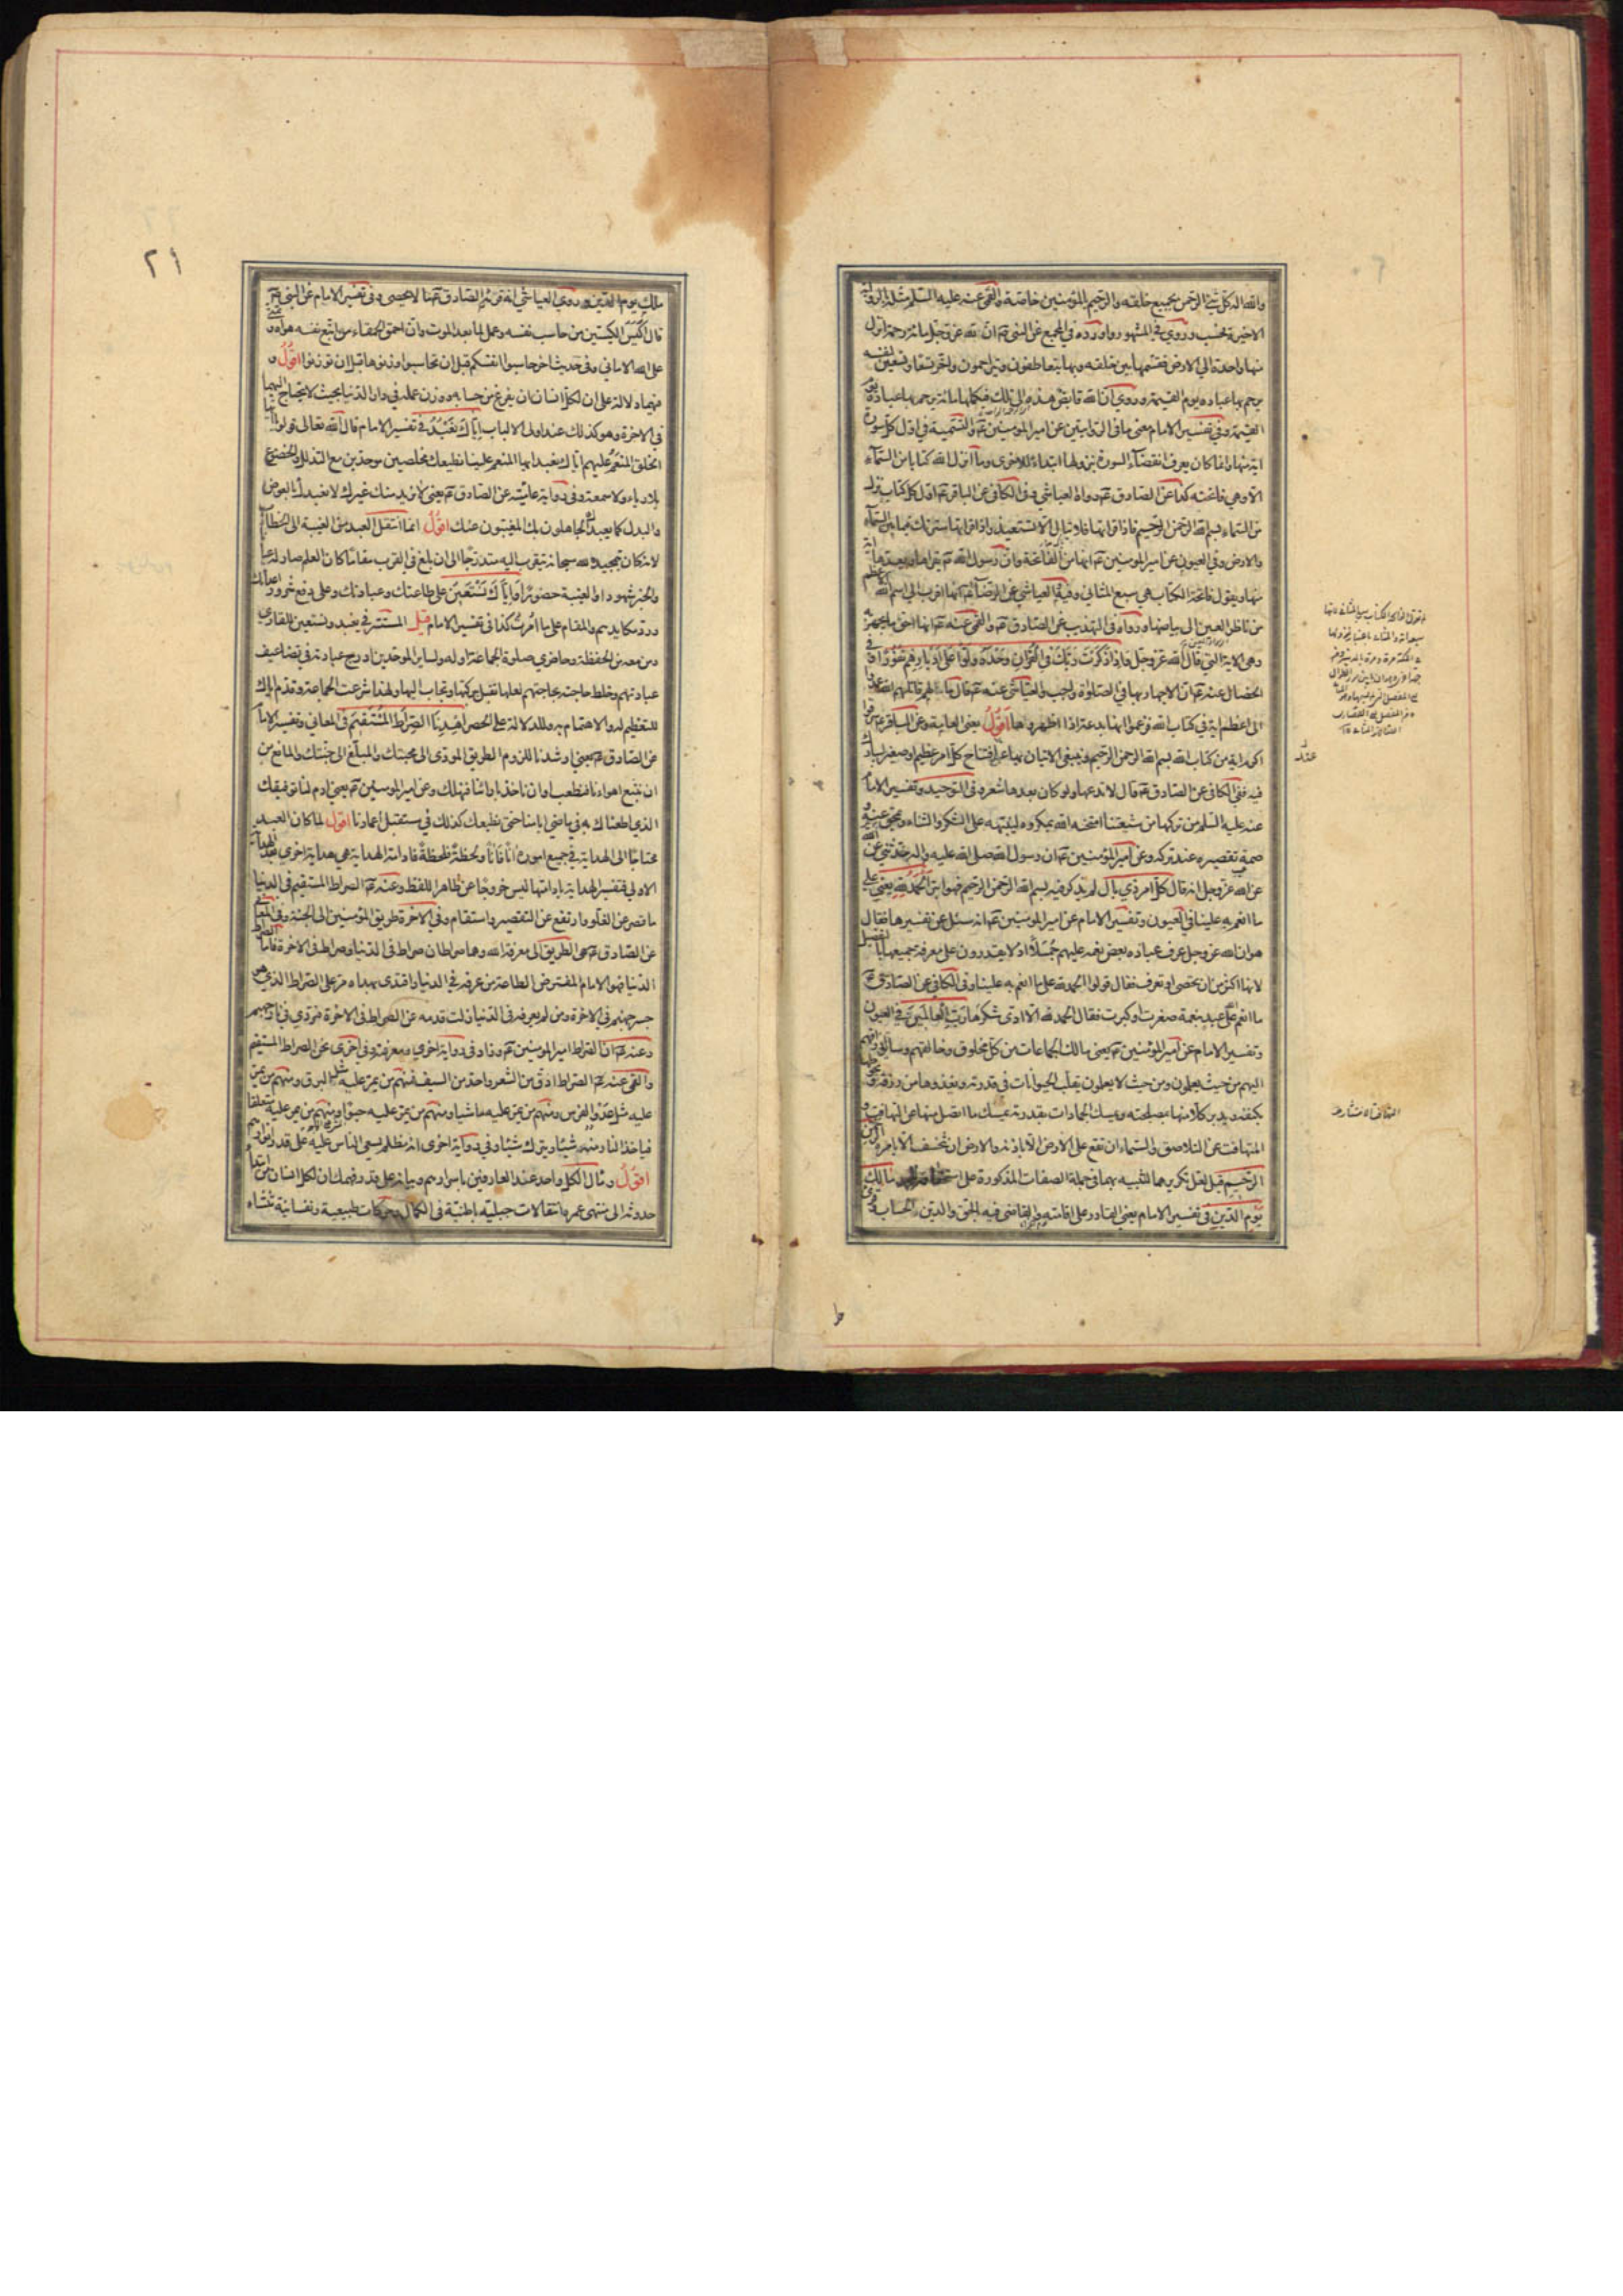 والله اله كل شيء الرحمن بجميع خلقه والرحيم بالمؤمنين خاصة والقمي عنه عليه السلم مثله الرواية
الاخيرة فحسب وروي في المشهور واورده في المجمع عن النبي ص ان لله عز وجل مائة رحمة انزل
منها واحدة الى الارض فقسمها بين خلقه فبها يتعاطفون ويتراحمون واخر تسعا وتسعين لنفسه
يرحم بها عباده يوم القيمة وروي ان الله قابض هذه الى تلك فيكملها مائة يرحم بها عباده يوم
القيمة وفي تفسير الامام معنى ما في الروايتين عن امير المؤمنين ع والتسمية في اول كل سورة
اية منها وانما كان يعرف انقضاء السورة بنزولها ابتداء للاخرى وما انزل الله كتابا من السماء
الا وهي فاتحته كذا عن الصادق ع رواه العياشي وفي الكافي عن الباقر ع اول كل كتاب نزل
من السماء بسم الله الرحمن الرحيم فاذا قراتها فلا تبالي الا تستعيذ واذا قراتها سترتك فيما بين السماء
والارض وفي العيون عن امير المؤمنين ع انها من الفاتحة وان رسول الله ص يقراها ويعدها اية
منها ويقول فاتحة الكتاب هي السبع المثاني وفيه والعياشي عن الرضا ع انها اقرب الى اسم الله الاعظم
من ناظر العين الى بياضها ورواه في التهذيب عن الصادق ع والقمي عنه ع انها احق ما يجهر به
وهي الاية التي قال الله عز وجل واذا ذكرت ربك في القران وحده ولوا على ادبارهم نفورا وفي
الخصال عنه ع ان الاجهار بها في الصلوة واجب والعياشي عنه ع قال ما لهم قاتلهم الله عمدوا
الى اعظم اية في كتاب الله فزعموا انها بدعة اذا اظهروها اقول يعني العامة وعن الباقر ع سرقوا
اكرم اية من كتاب الله بسم الله الرحمن الرحيم وينبغي الاتيان بها عند افتتاح كل امر عظيم او صغير ليبارك
فيه ففي الكافي عن الصادق ع قال لا تدعها ولو كان بعدها شعر وفي التوحيد وتفسير الامام
عنه عليه السلم من تركها من شيعتنا امتحنه الله بمكروه لينبهه على الشكر والثناء ويمحق عنه
وصمة تقصيره عند تركه وعن امير المؤمنين ع ان رسول الله صلى الله عليه واله حدثني عن الله
عز وجل انه قال كل امر ذي بال لم يذكر فيه بسم الله الرحمن الرحيم فهو ابتر الحمد لله يعني على
ما انعم به علينا في العيون وتفسير الامام عن امير المؤمنين ع انه سئل عن تفسيرها فقال
هو ان الله عز وجل عرف عباده بعض نعمه عليهم جملا اذ لا يقدرون على معرفة جميعها بالتفصيل
لانها اكثر من ان تحصى او تعرف فقال قولوا الحمد لله على ما انعم به علينا وفي الكافي عن الصادق ع
ما انعم الله على عبد بنعمة صغرت او كبرت فقال الحمد لله الا ادى شكرها رب العالمين في العيون
وتفسير الامام عن امير المؤمنين ع يعني مالك الجماعات من كل مخلوق وخالقهم وسائق رزقهم
اليهم من حيث يعلمون ومن حيث لا يعلمون يقلب الحيوانات في قدرته ويغذوها من رزقه ويحوطها
بكنفه ويدبر كلا منها بمصلحته ويمسك الجمادات بقدرته يمسك ما اتصل منها عن التهافت و
المتهافت عن التلاصق والسماء ان تقع على الارض الا باذنه والارض ان تنخسف الا بامره الرحمن
الرحيم قيل لعل تكريرهما للتنبيه بهما في جملة الصفات المذكورة على استحقاقه الحمد مالك
يوم الدين في تفسير الامام يعني القادر على اقامته والقاضي فيه بالحق والدين الحساب وقرئ
عند
٢١
ملك يوم الدين وروى العياشي انه قراه الصادق ع ما لا يحصى وفي تفسير الامام عن النبي ص
قال اكيس الكيسين من حاسب نفسه وعمل لما بعد الموت وان احمق الحمقاء من اتبع نفسه هواه وتمنى
على الله الاماني وفي حديث اخر حاسبوا انفسكم قبل ان تحاسبوا وزنوها قبل ان توزنوا اقول و
فيهما دلالة على ان لكل انسان ان يفرغ من حسابه ووزن عمله في دار الدنيا بحيث لا يحتاج اليهما
في الاخرة وهو كذلك عند اولي الالباب اياك نعبد في تفسير الامام قال الله تعالى قولوا يا ايها
الخلق المنعم عليهم اياك نعبد ايها المنعم علينا نطيعك مخلصين موحدين مع التذلل والخضوع
بلا رياء ولا سمعة وفي رواية عامية عن الصادق ع يعني لا نريد منك غيرك لا نعبدك بالعوض
والبدل كما يعبدك الجاهلون بك المغيبون عنك اقول انما انتقل العبد من الغيبة الى الخطاب
لانه كان بتمجيده لله سبحانه يتقرب اليه متدرجا الى ان بلغ في القرب مقاما كان العلم صار له عيانا
والخبر شهودا والغيبة حضورا واياك نستعين على طاعتك وعبادتك وعلى دفع شرور اعدائك
ورد مكايدهم والمقام على ما امرت كذا في تفسير الامام قيل المستتر في نعبد ونستعين للقاري
ومن معه من الحفظة وحاضري صلوة الجماعة او له ولساير الموحدين ادرج عبادته في تضاعيف
عبادتهم وخلط حاجته بحاجتهم لعلها تقبل ببركتها وتجاب اليها ولهذا شرعت الجماعة وقدم اياك
للتعظيم له والاهتمام به وللدلالة على الحصر اهدنا الصراط المستقيم في المعاني وتفسير الامام
عن الصادق ع يعني ارشدنا للزوم الطريق المودي الى محبتك والمبلغ الى جنتك والمانع من
ان نتبع اهواءنا فنعطب او ان ناخذ بارائنا فنهلك وعن امير المؤمنين ع يعني ادم لنا توفيقك
الذي اطعناك به في ماضي ايامنا حتى نطيعك كذلك في مستقبل اعمارنا اقول لما كان العبد
محتاجا الى الهداية في جميع اموره انا فانا ولحظة فلحظة فادامة الهداية هي هداية اخرى بعد الهداية
الاولى فتفسير الهداية بادامتها ليس خروجا عن ظاهر اللفظ وعنه ع الصراط المستقيم في الدنيا
ما قصر عن الغلو وارتفع عن التقصير واستقام وفي الاخرة طريق المؤمنين الى الجنة وفي المعاني
عن الصادق ع هي الطريق الى معرفة الله وهما صراطان صراط في الدنيا وصراط في الاخرة فاما الصراط
الدنيا فهو الامام المفترض الطاعة من عرفه في الدنيا واقتدى بهداه مر على الصراط الذي هو
جسر جهنم في الاخرة ومن لم يعرفه في الدنيا زلت قدمه عن الصراط في الاخرة فتردى في نار جهنم
وعنه ع ان الصراط امير المؤمنين ع وزاد في رواية اخرى ومعرفته وفي اخرى نحن الصراط المستقيم
والقمي عنه ع الصراط ادق من الشعر واحد من السيف فمنهم من يمر عليه مثل البرق ومنهم من يمر
عليه مثل عدو الفرس ومنهم من يمر عليه ماشيا ومنهم من يمر عليه حبوا ومنهم من يمر عليه متعلقا
فياخذ النار منه شيئا ويترك شيئا وفي رواية اخرى انه مظلم يسعى الناس عليه على قدر انوارهم
اقول ومآل الكل واحد عند العارفين باسرارهم وبيانه على قدر فهمك ان لكل انسان من ابتداء
حدوثه الى منتهى عمره انتقالات جبلية باطنية في الكمال وحركات طبيعية ونفسانية تنشاء